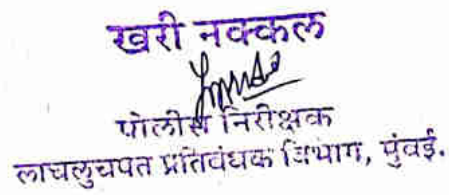 खरी नक्कल
पोलीस निरीक्षक
लाचलुचपत प्रतिबंधक विभाग, मुंबई.